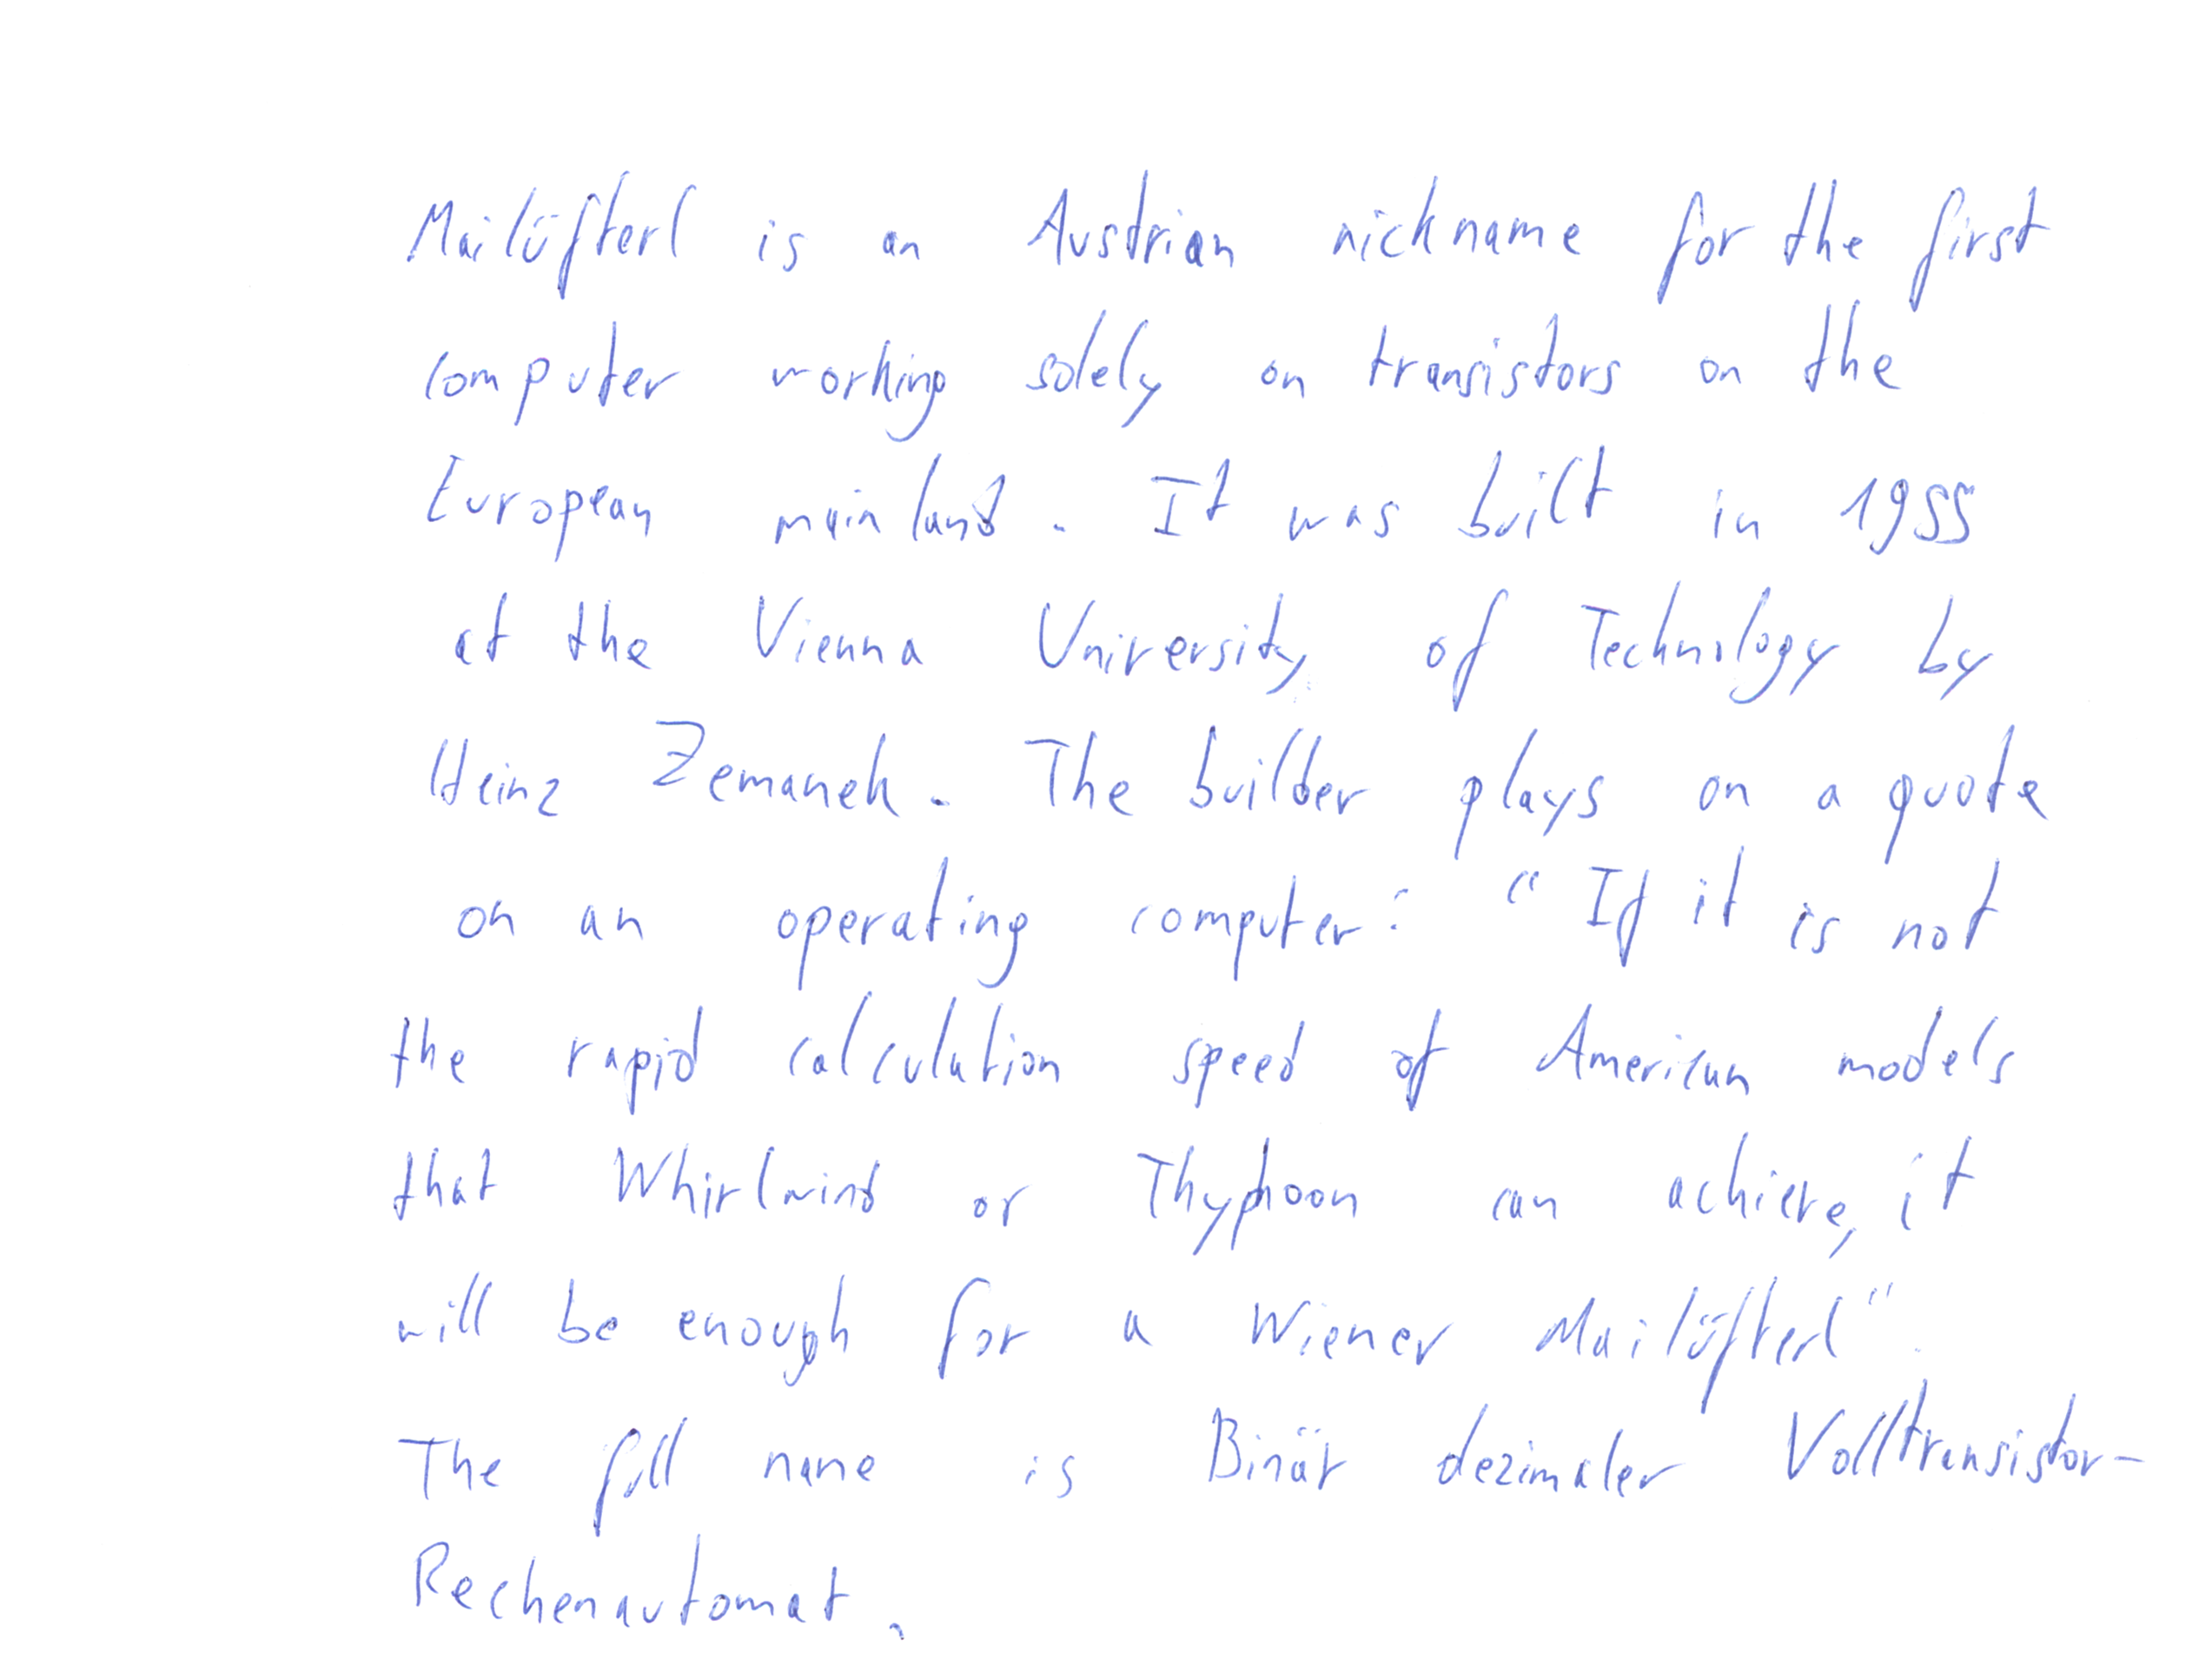 Mailüfterl is an Austrian nickname for the first
computer working solely on transistors on the
European mainland. It was built in 1955
at the Vienna University of Technology by
Heinz Zemanek. The builder plays on a quote
on an operating computer: "If it is not
the rapid calculation speed of American models
that Whirlwind or Thyphoon can achieve, it
will be enough for a Wiener Mailüfterl".
The full name is Binär dezimaler Volltransistor-
Rechenautomat.